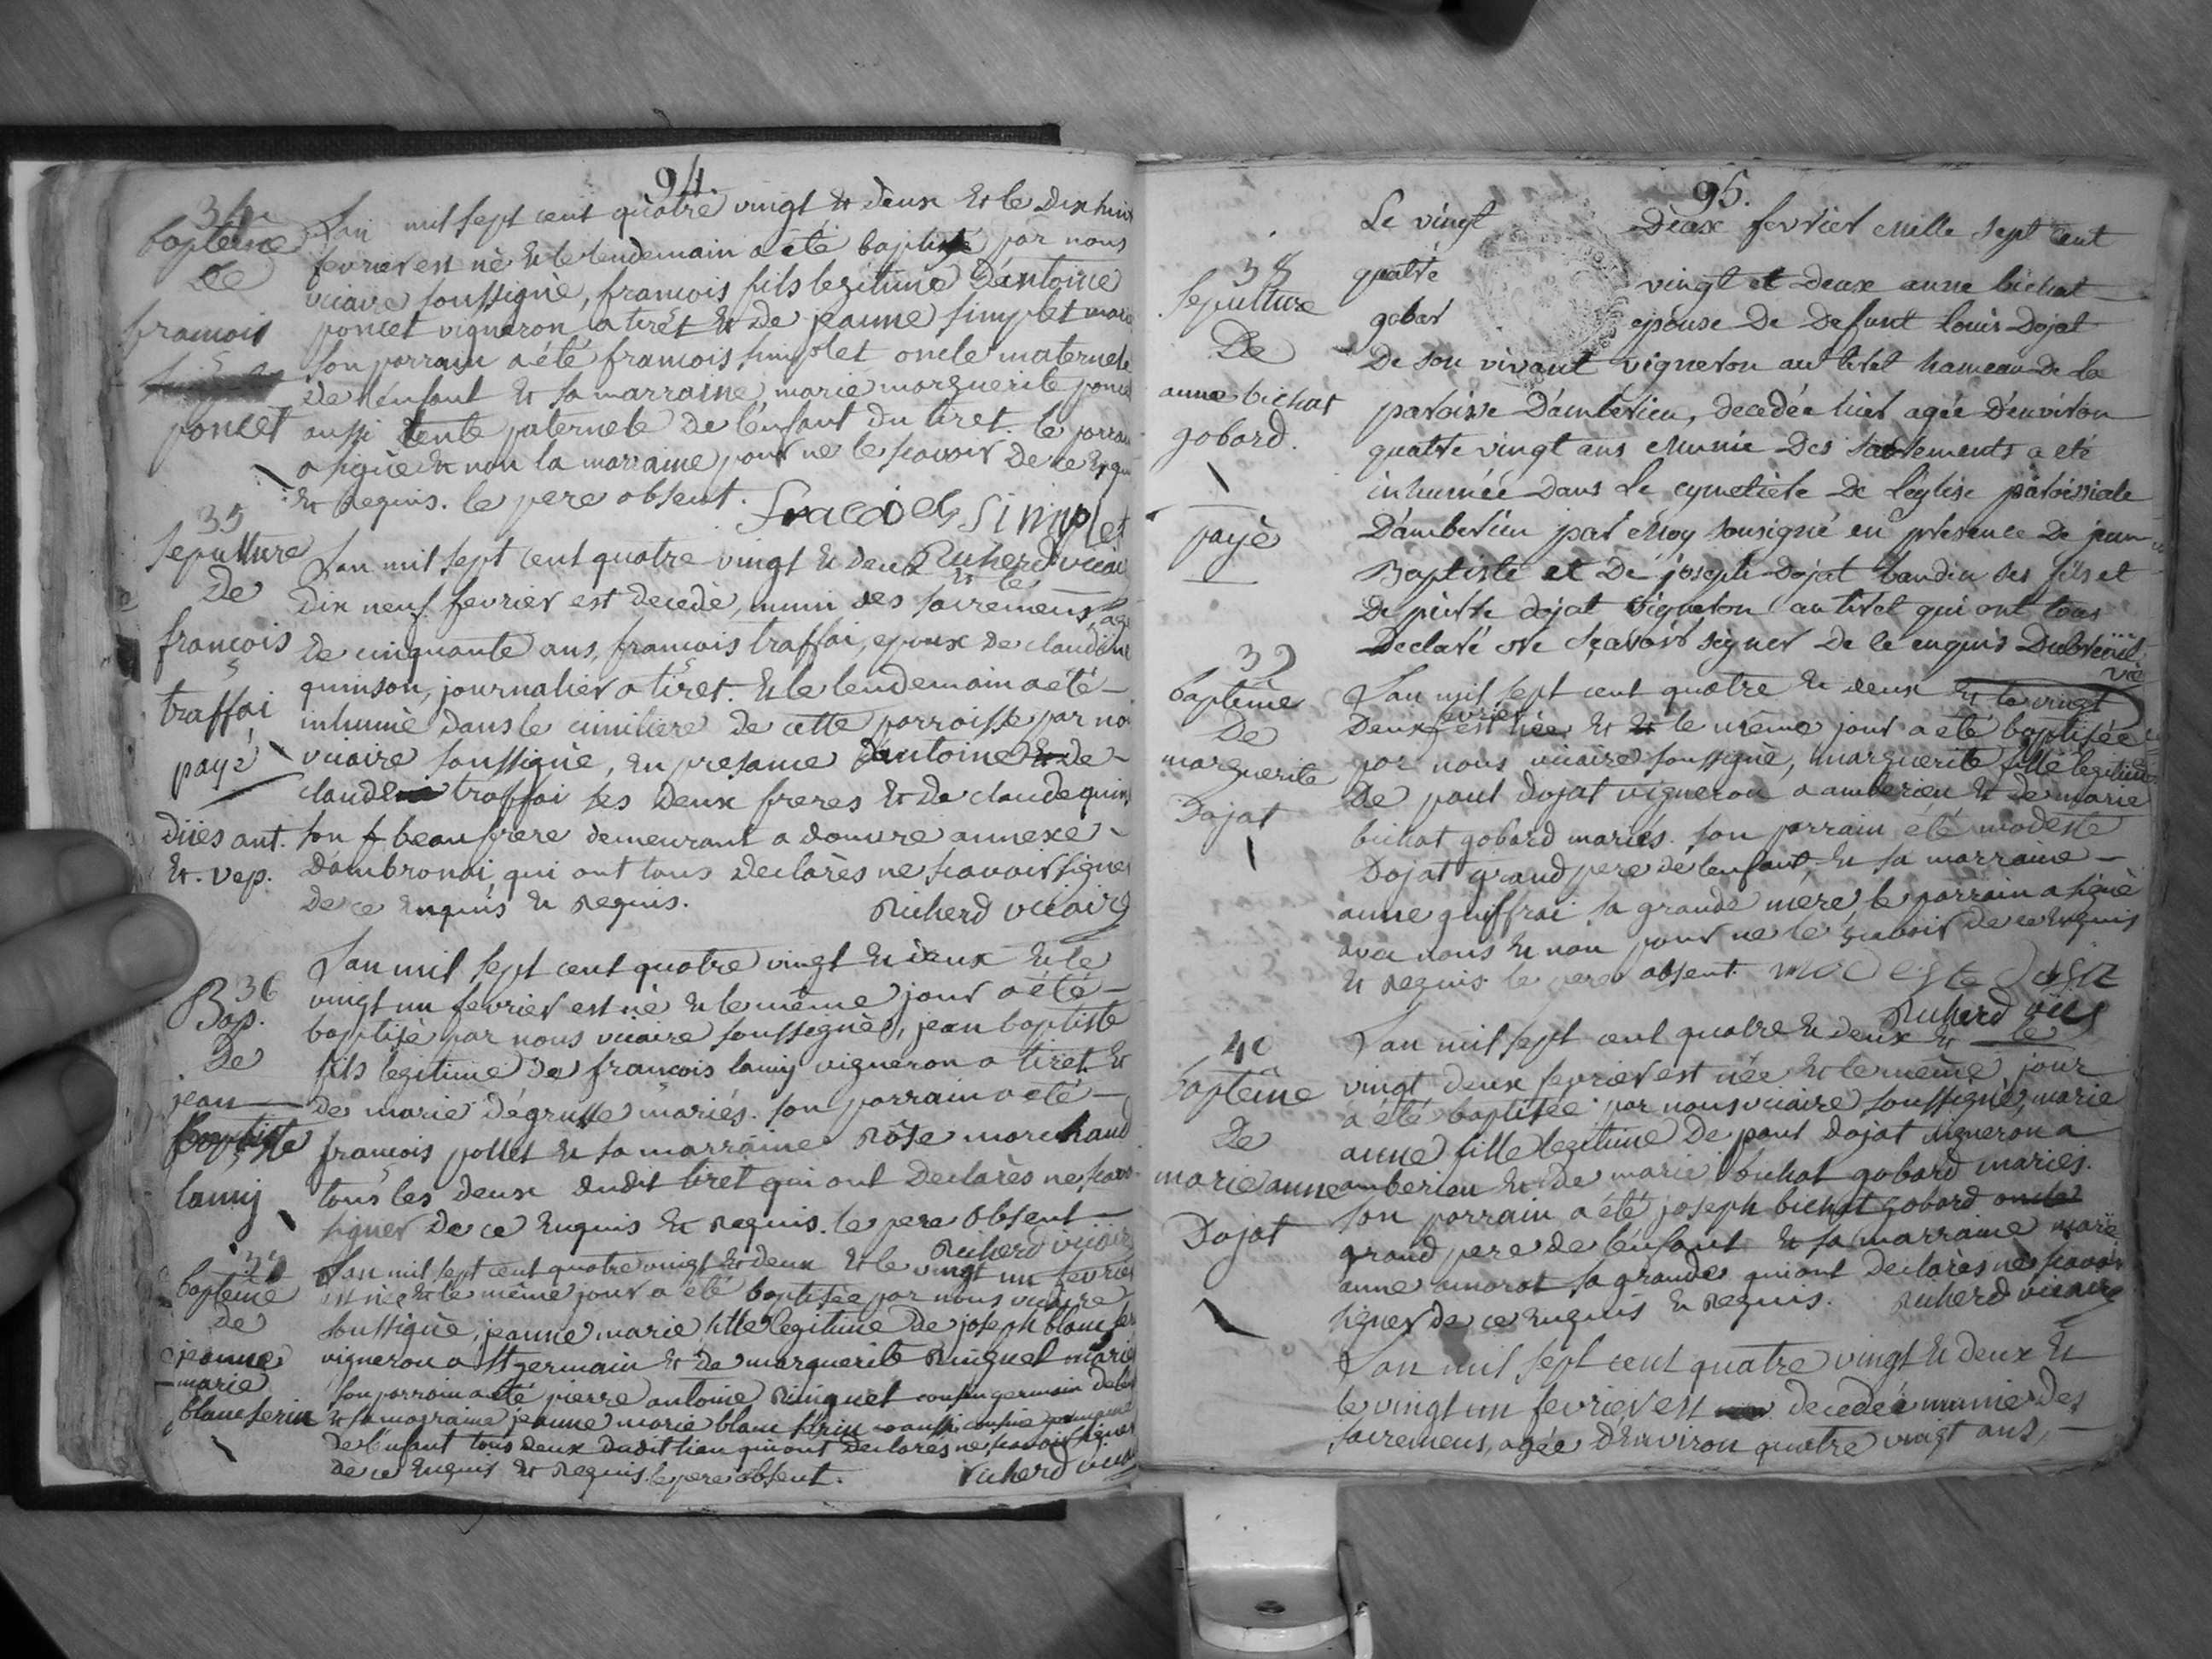 94.
34
bapteme
de
francois
poncet
L'an mil sept cent quatre vingt & deux & le dix huit
fevrier est nè & le lendemain a été baptisé par nous
vicaire soussignè, francois fils legitime d'antoine
poncet vigneron a tiret & de jeanne simplet mariés
son parrain a été francois simplet oncle maternele
de l'enfant & sa marraine marie marguerite poncet
aussi tente paternele de l'enfant du tiret. le parrain
a signè & non la marraine pour ne le scavoir de ce enquis
& requis. le pere absent. francois simplet
Richerd vicaire
35
sepulture
de
francois
traffai
payé
diies ant.
&. vep.
L'an mil sept cent quatre vingt & deux & le
dix neuf fevrier est decedè, muni des sacremens, agé
de cinquante ans, francois traffai, epoux de claudine
quinson, journalier a tiret. & le lendemain a été
inhumè dans le cimitiere de cette parroisse par nous
vicaire soussigné, en presance d'antoine & de
claude traffai ses deux freres & de claude quin
son beaufrere demeurant a douvre annexe
d'ambronai qui ont tous declarès ne scavoir signer
de ce enquis & requis. Richerd vicaire
36
Bap.
de
jean
baptiste
lamy
L'an mil sept cent quatre vingt & deux & le
vingt un fevrier est nè & le même jour a été
baptisè par nous vicaire soussignè, jean baptiste
fils legitime de francois lamy vigneron a tiret &
de marie dégrusse mariés. son parrain a été
francois pollet & sa marraine Rose marchand
tous les deux dudit tiret qui ont declarès ne scavoir
signer de ce enquis & requis. le pere absent
Richerd vicaire
37
bapteme
de
jeanne
marie
blanc ferin
L'an mil sept cent quatre vingt & deux & le vingt un fevrier
est née & le même jour a été baptisée par nous vicaire
soussignè, jeanne marie fille legitime de joseph blanc ferin
vigneron a st germain & de marguerite Ringuet mariés
son parrain a été pierre antoine Ringuet cousin germain de l'enfant
& sa marraine jeanne marie blanc ferin aussi cousine germaine
de l'enfant tous deux dudit lieu qui ont declarès ne scavoir signer
de ce enquis & requis. le pere absent. Richerd vicaire
95.
38
sepulture
De
anne bichat
gobard.
payè
Le vingt Deux fevrier mille sept cent
quatre vingt et deux anne bichat
gobar epouse De defunt Louis Dojat
De son vivant vigneron au tiret hameau De la
paroisse D'amberieu, decedée hier agée D'environ
quatre vingt ans munie Des sacrements a eté
inhumée Dans Le cymetiere De l'eglise paroissiale
D'amberieu par Moy sousigné en presence De jean
Baptiste et De joseph Dojat baudin ses fils et
De pierre dojat vigneron au tiret qui ont tous
Declaré ne sçavoir signer De ce enquis Dubreüil
vic
39
baptême
De
marguerite
Dojat
L'an mil sept cent quatre & deux & le vingt
deux fevrier est née & le même jour a été baptisée
par nous vicaire soussignè, marguerite fille legitime
de paul dojat vigneron a amberieu & de marie
bichat gobard mariés. son parrain été modeste
Dojat grand pere de l'enfant, & sa marraine
anne guiffrai sa grande mere, le parrain a signè
avec nous & non pour ne le scavoir de ce enquis
& requis. le pere absent. modeste dojat
Richerd vic
40
baptême
De
marie anne
Dojat
L'an mil sept cent quatre & deux & le
vingt deux fevrier est née & le même jour
a été baptisée par nous vicaire soussigné, marie
anne fille legitime de paul dojat vigneron a
amberieu & de marie bichat gobard mariés.
son parrain a été joseph bichat gobard oncle
grand pere de l'enfant & sa marraine marie
anne amorat sa grande qui ont declarès ne scavoir
signer de ce enquis & requis. Richerd vicaire
L'an mil sept cent quatre vingt & deux &
le vingt un fevrier est decedeé munie des
sacremens, agée d'environ quatre vingt ans,